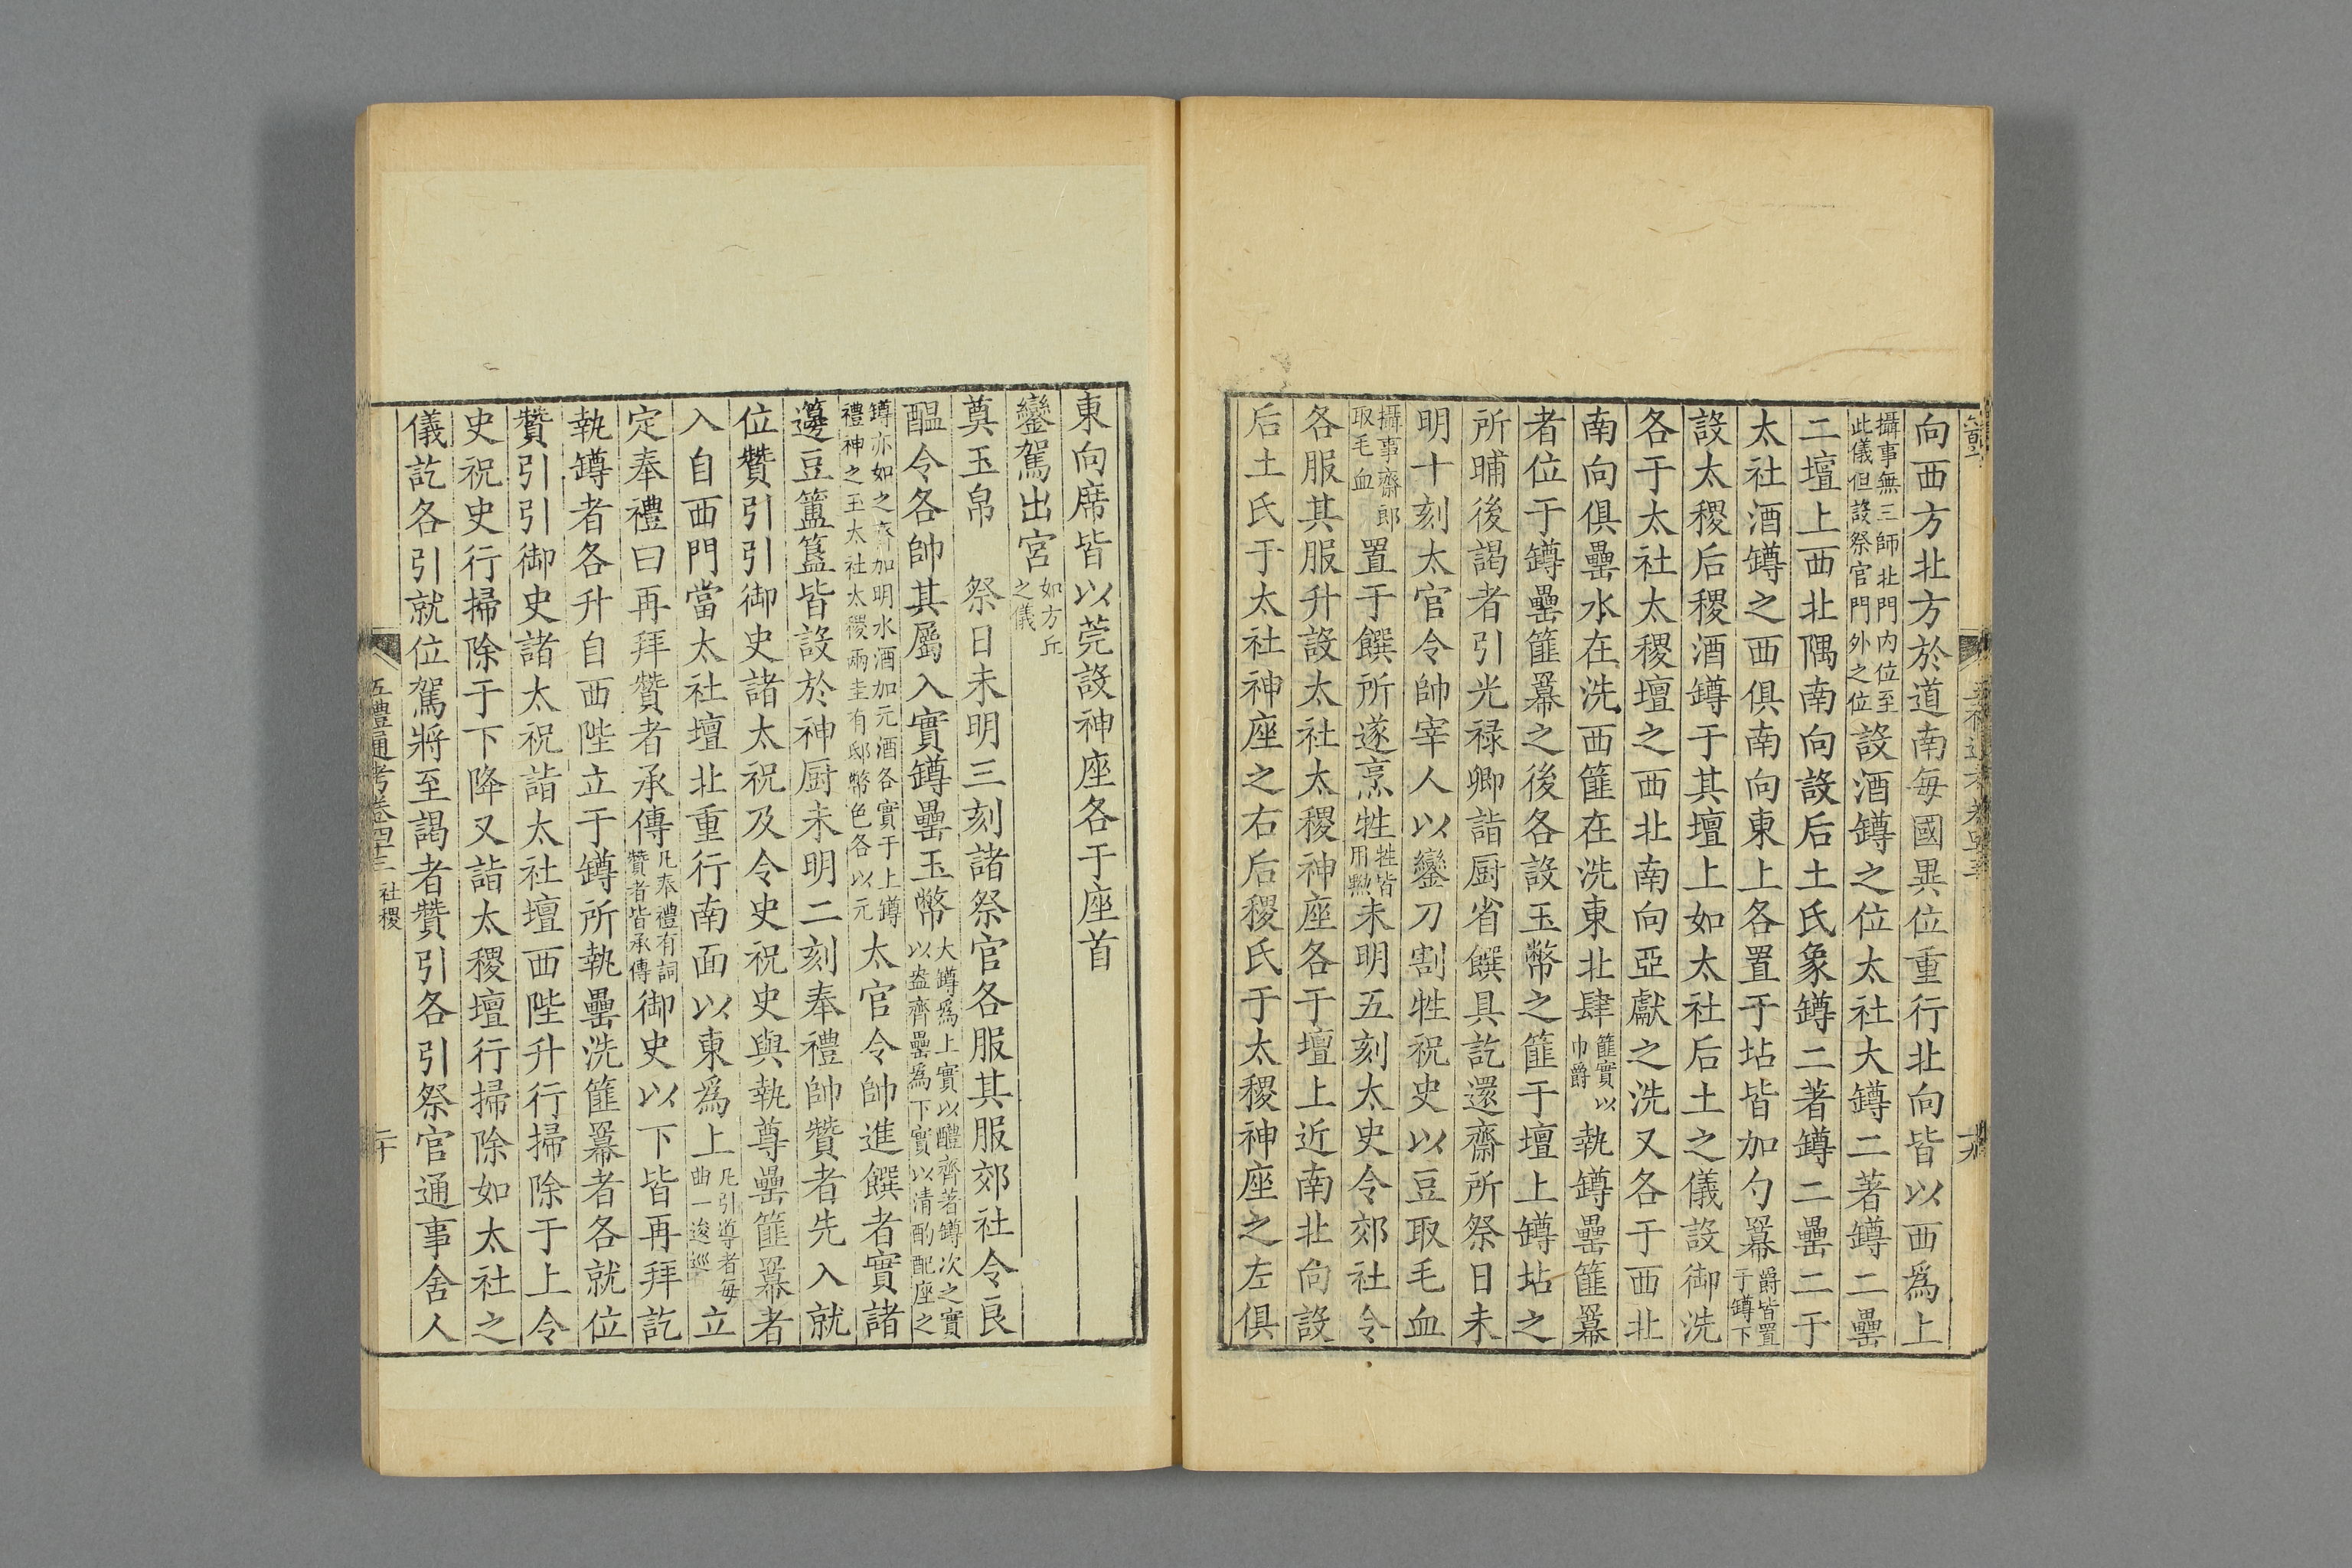 向西方北方於道南每國異位重行北向皆以西爲上
攝事無三師北門内位至此儀但設祭官門外之位設酒罇之位太社大罇二著罇二罍
二壇上西北隅南向設后土氏象罇二著罇二罍二于
太社酒罇之西俱南向東上各置于坫皆加勺羃爵皆置于罇下
設太稷后稷酒罇于其壇上如太社后土之儀設御洗
各于太社太稷壇之西北南向亞獻之洗又各于西北
南向俱罍水在洗西篚在洗東北肆篚實以巾爵執罇罍篚羃
者位于罇罍篚羃之後各設玉幣之篚于壇上罇坫之
所晡後謁者引光禄卿詣厨省饌具訖還齋所祭日未
明十刻太官令帥宰人以鑾刀割牲祝史以豆取毛血
攝事齋郎取毛血置于饌所遂烹牲牲皆用黝未明五刻太史令郊社令
各服其服升設太社太稷神座各于壇上近南北向設
后土氏于太社神座之右后稷氏于太稷神座之左俱
東向席皆以莞設神座各于座首
鑾駕出宮如方丘之儀
奠玉帛　祭日未明三刻諸祭官各服其服郊社令良
醖令各帥其屬入實罇罍玉幣大罇爲上實以醴齊著罇次之實以盎齊罍爲下實以清酌配座之
罇亦如之齊加明水酒加元酒各實于上罇禮神之玉太社太稷兩圭有邸幣色各以元太官令帥進饌者實諸
籩豆簠簋皆設於神厨未明二刻奉禮帥贊者先入就
位贊引引御史諸太祝及令史祝史與執尊罍篚羃者
入自西門當太社壇北重行南面以東爲上凡引導者每曲一逡巡立
定奉禮曰再拜贊者承傳凡奉禮有詞贊者皆承傳御史以下皆再拜訖
執罇者各升自西陛立于罇所執罍洗篚羃者各就位
贊引引御史諸太祝詣太社壇西陛升行掃除于上令
史祝史行掃除于下降又詣太稷壇行掃除如太社之
儀訖各引就位駕將至謁者贊引各引祭官通事舍人
五禮通考卷四十三　社稷　二十